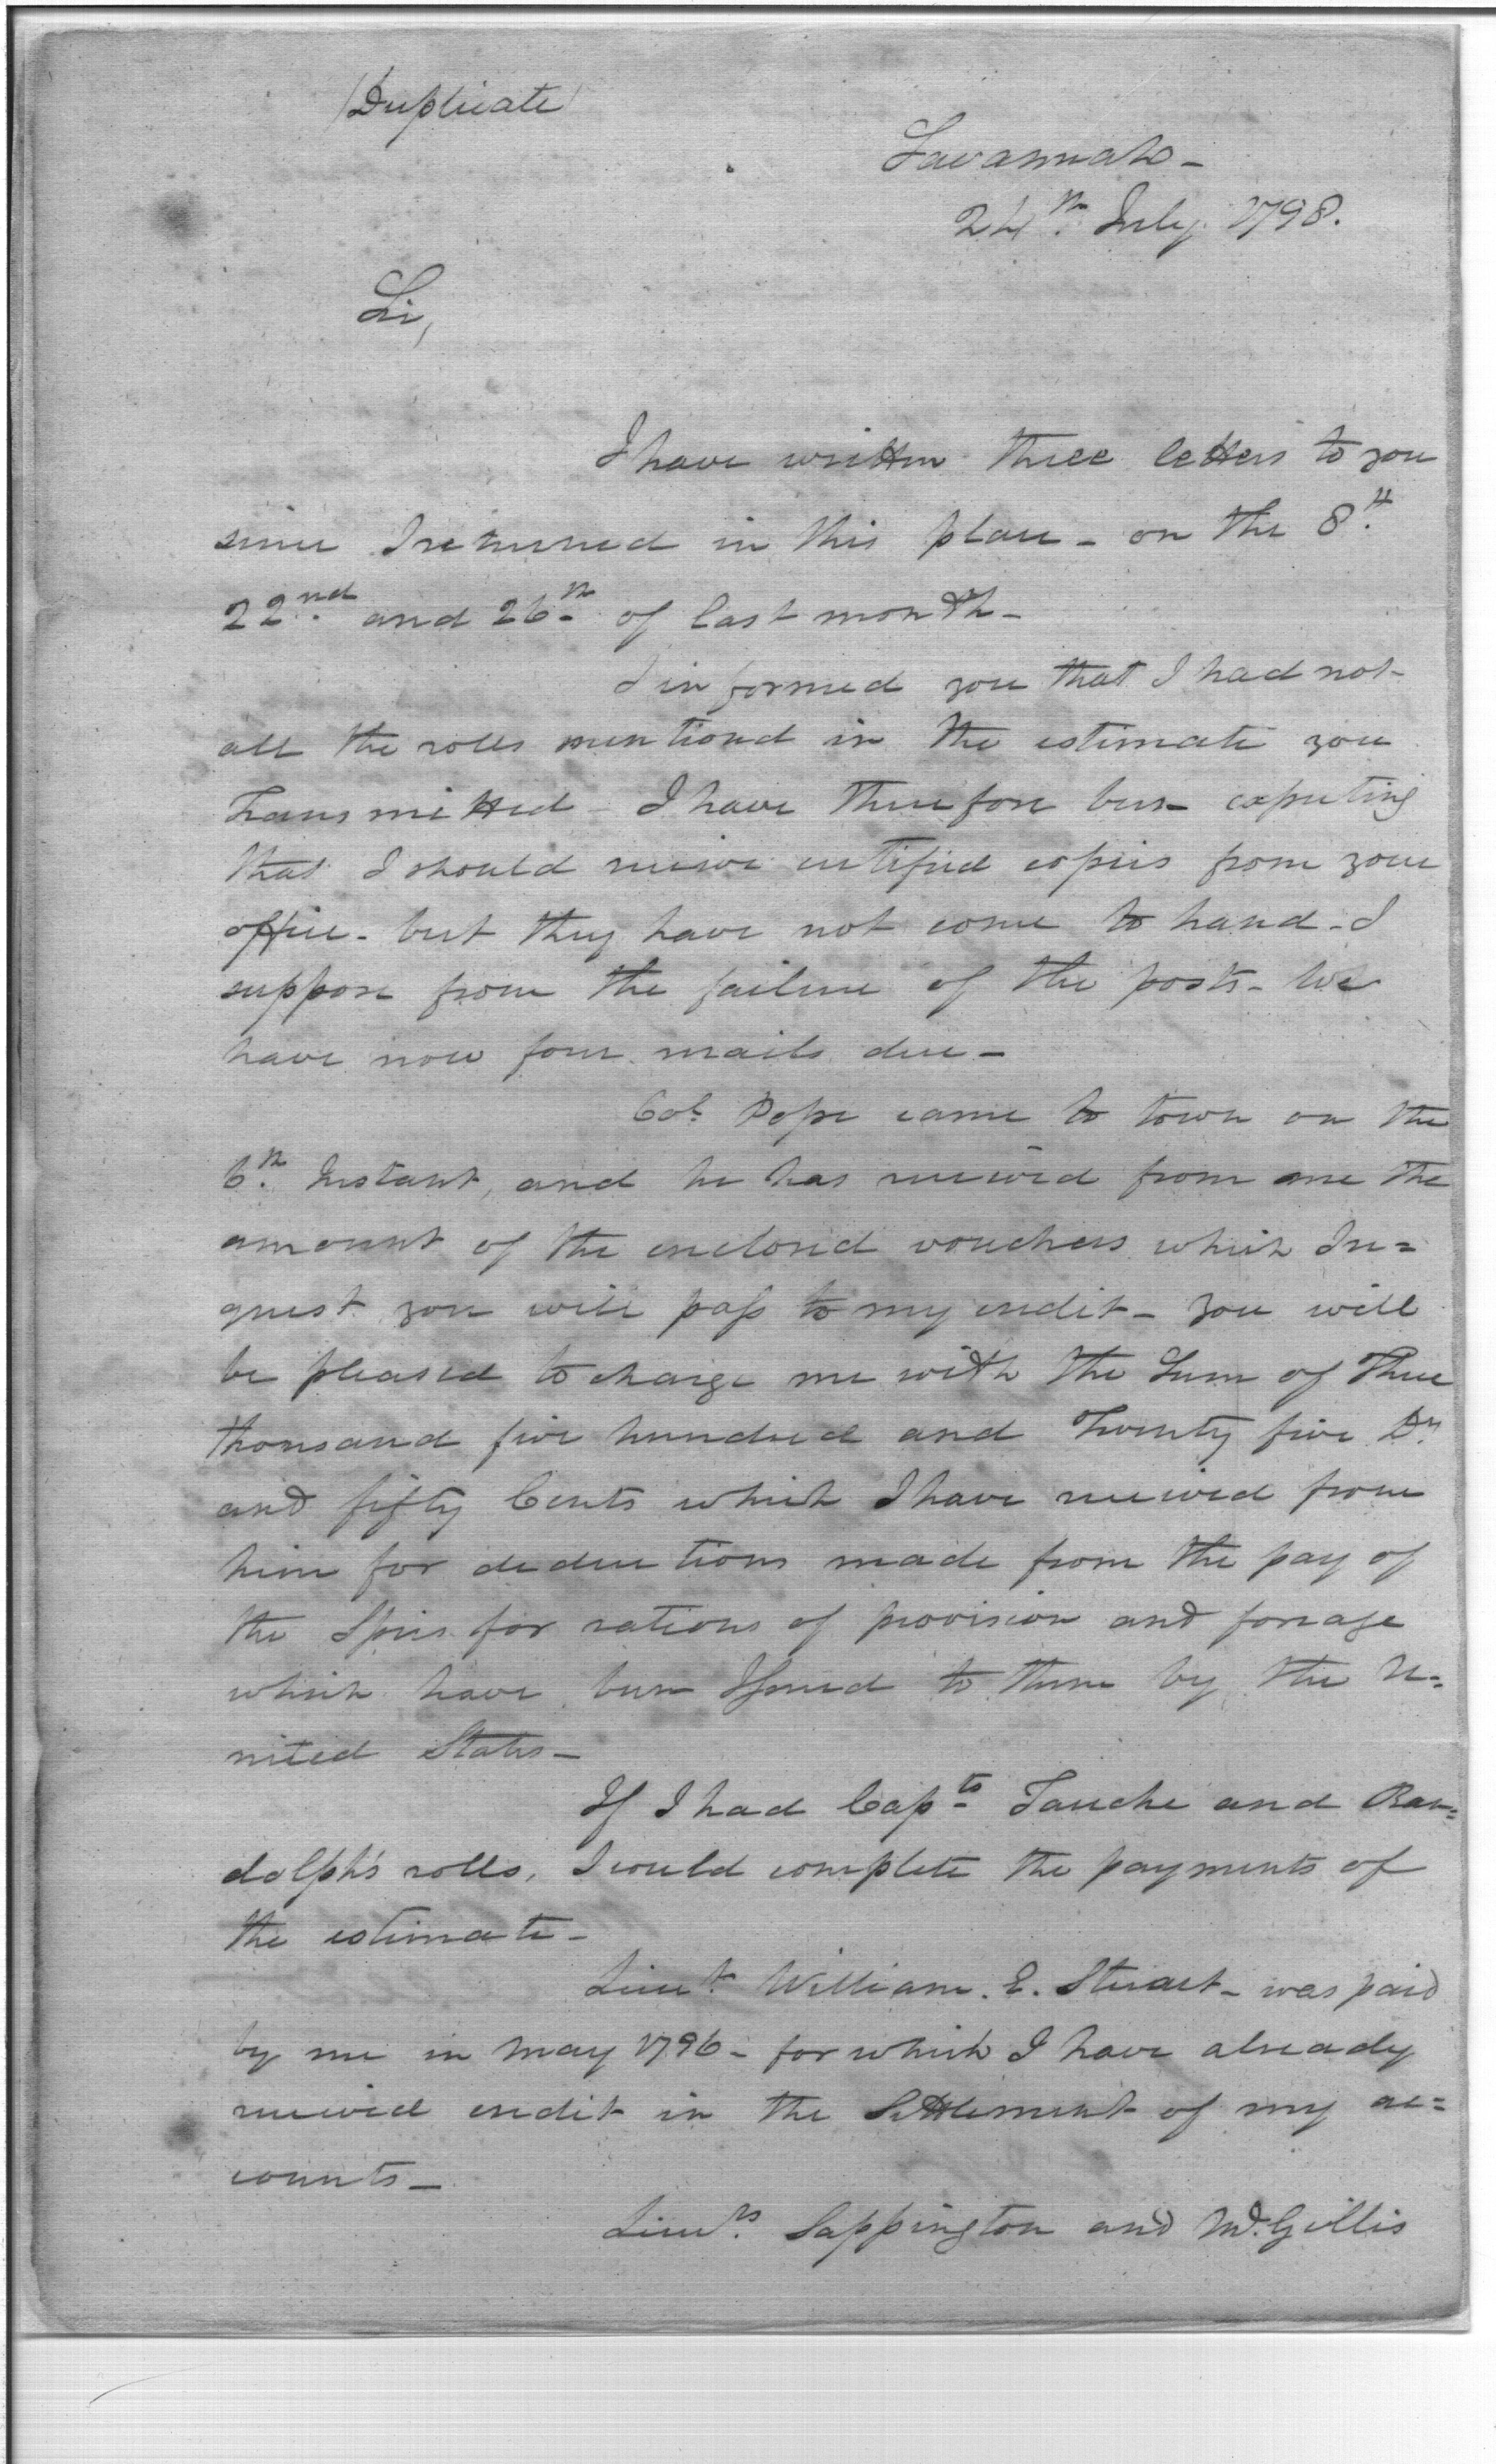 (Duplicate)
Savannah -
24th. July 1798.
Sir,
I have written three letters to you
since I returned in this place - on the 8th.
22nd. and 26th. of last month -
I informed you that I had not
all the rolls mentiond in the estimate you
Transmitted - I have therefore been expecting
that I should receive certified copies from your
office - but they have not come to hand - I
suppose from the failure of the posts - We
have now four mails due -
Col. Pope came to town on the
6th. Instant, and he has received from me the
amount of the enclosed vouchers which I re=
quest you will pass to my credit - you will
be pleased to charge me with the Sum of Three
thousand five hundred and Twenty five Drs
and fifty Cents which I have received from
him for deductions made from the pay of
the Spies for rations of provision and forrage
which have been Issued to them by the U=
nited States -
If I had Capts. Fauche and Ran=
dolph's rolls, I could complete the payments of
the estimate -
Lieut. William. E. Stuart - was paid
by me in May 1796 - for which I have already
received credit in the Settlement of my ac=
counts -
Lieuts. Sappington and McGillis